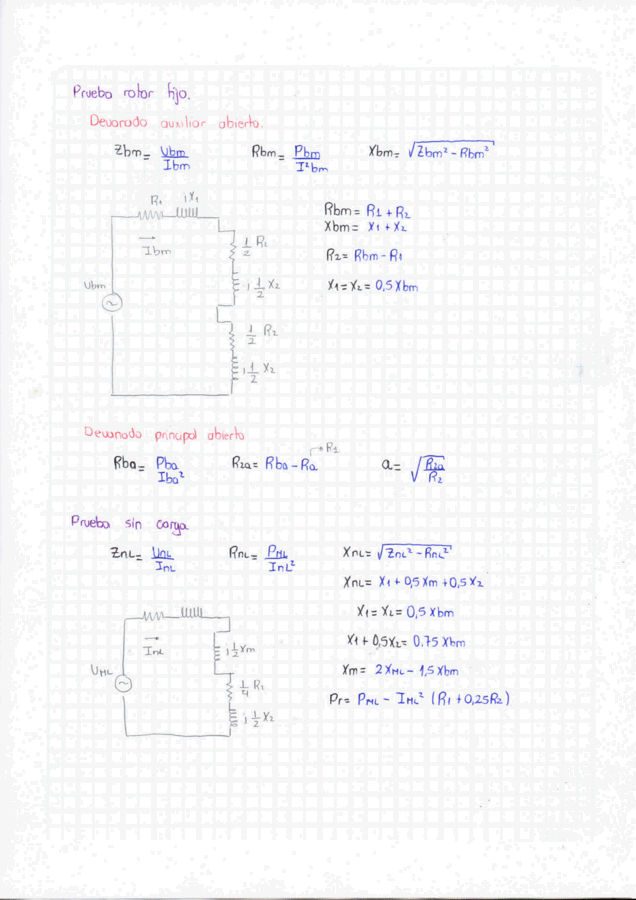 Prueba rotor fijo.
Devanado auxiliar abierto.
Zbm = Ubm / Ibm   Rbm = Pbm / I²bm   Xbm = √(Zbm² - Rbm²)
R1   jX1
Ibm
Ubm
1/2 R2
j 1/2 X2
1/2 R2
j 1/2 X2
Rbm = R1 + R2
Xbm = X1 + X2
R2 = Rbm - R1
X1 = X2 = 0,5 Xbm
Devanado principal abierto
Rba = Pba / Iba²   R2a = Rba - Ra → R1   a = √(R2a / R2)
Prueba sin carga
ZnL = UnL / InL   RnL = PML / InL²   XnL = √(ZnL² - RnL²)
XnL = X1 + 0,5 Xm + 0,5 X2
X1 = X2 = 0,5 Xbm
X1 + 0,5X2 = 0.75 Xbm
Xm = 2XML - 1,5Xbm
Pr = PML - IML² (R1 + 0,25R2)
InL
UML
j 1/2 Xm
1/4 R2
j 1/2 X2